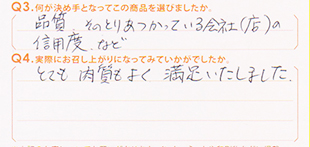 Q3.何が決め手となってこの商品を選びましたか。
品質、そのとりあつかっている会社(店)の
信用度、など
Q4.実際にお召し上がりになってみていかがでしたか。
とても 肉質もよく 満足いたしました。